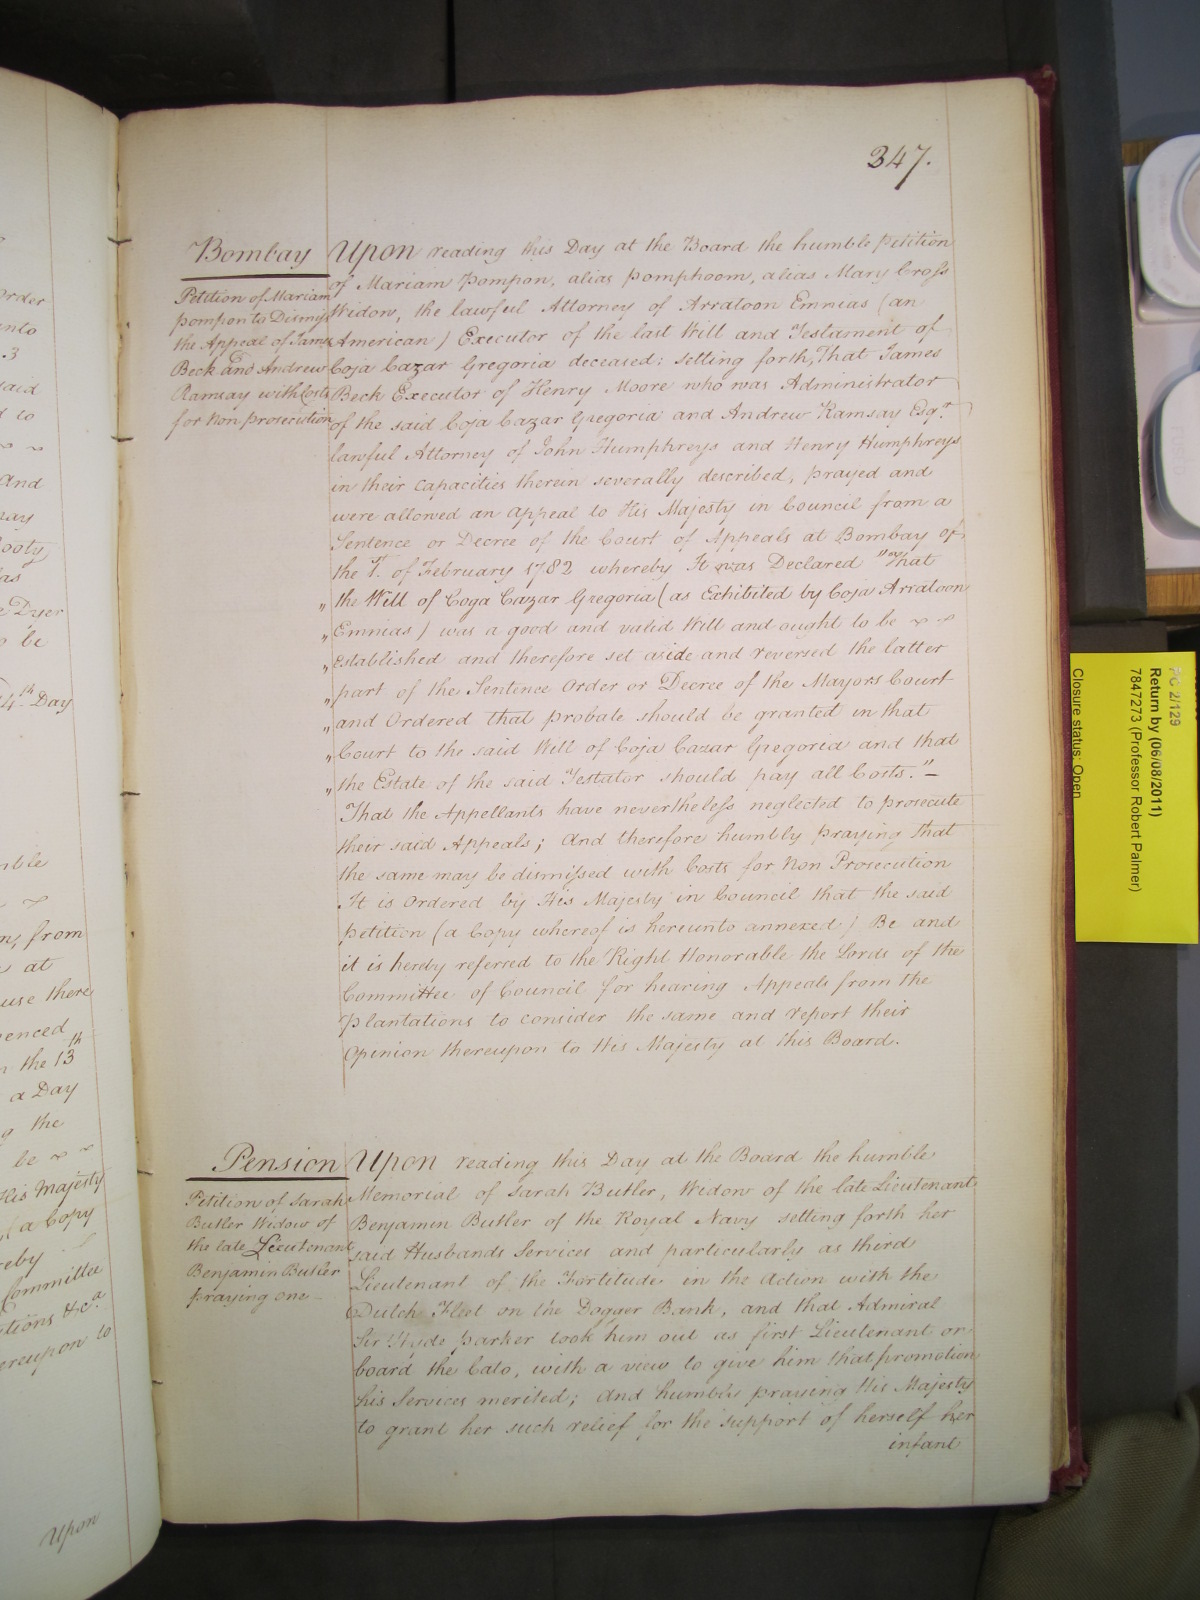 347.
Bombay
Petition of Mariam
pompon to Dismiss
the Appeal of James
Beck and Andrew
Ramsay with Costs
for Non prosecution
Upon reading this Day at the Board the humble Petition
of Mariam Pompon, alias pomphoom, alias Mary Cross
Widow, the lawful Attorney of Arratoon Emnias (an
American) Executor of the last Will and Testament of
Coja Cazar Gregoria deceased; setting forth, That James
Beck Executor of Henry Moore who was Administrator
of the said Coja Cazar Gregoria and Andrew Ramsay Esqr.
lawful Attorney of John Humphreys and Henry Humphreys
in their Capacities therein severally described, prayed and
were allowed an appeal to His Majesty in Council from a
Sentence or Decree of the Court of Appeals at Bombay of
the 1st. of February 1782 whereby It was Declared "That
" the Will of Coga Cazar Gregoria (as Exhibited by Coja Aratoon
" Emnias) was a good and valid Will and ought to be
" established and therefore set aside and reversed the latter
" part of the Sentence Order or Decree of the Mayors Court
" and Ordered that probate should be granted in that
" Court to the said Will of Coja Cazar Gregoria and that
" the Estate of the said Testator should pay all Costs." —
That the Appellants have nevertheless neglected to prosecute
their said Appeals; And therefore humbly praying that
the same may be dismissed with Costs for Non Prosecution
It is Ordered by His Majesty in Council that the said
petition (a Copy whereof is hereunto annexed) Be and
it is hereby referred to the Right Honorable the Lords of the
Committee of Council for hearing Appeals from the
Plantations to consider the same and report their
Opinion thereupon to His Majesty at this Board.
Pension
Petition of Sarah
Butler Widow of
the late Lieutenant
Benjamin Butler
praying one
Upon reading this Day at the Board the humble
Memorial of Sarah Butler, Widow of the late Lieutenant
Benjamin Butler of the Royal Navy setting forth her
said Husbands Services and particularly as third
Lieutenant of the Fortitude in the Action with the
Dutch Fleet on the Dogger Bank, and that Admiral
Sir Hyde parker took him out as first Lieutenant on
board the Cato, with a view to give him that promotion
his Services merited; and humbly praying His Majesty
to grant her such relief for the support of herself her
infant
Order
.3
said
to
And
Dyer
be
4th. Day
from
at
there
the 13th
a Day
the
be
His Majesty
(a Copy
Committee
&ca.
thereupon to
Upon
PC 2/129
Return by (06/08/2011)
7847273 (Professor Robert Palmer)
Closure status: Open